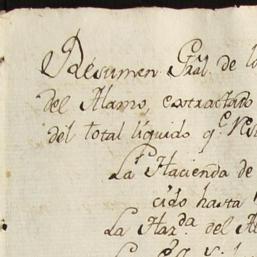 Resumen Gral. de lo
del Alamo, extractado
del total líquido q.e
La Hacienda de
cido hasta
La Haz.da del